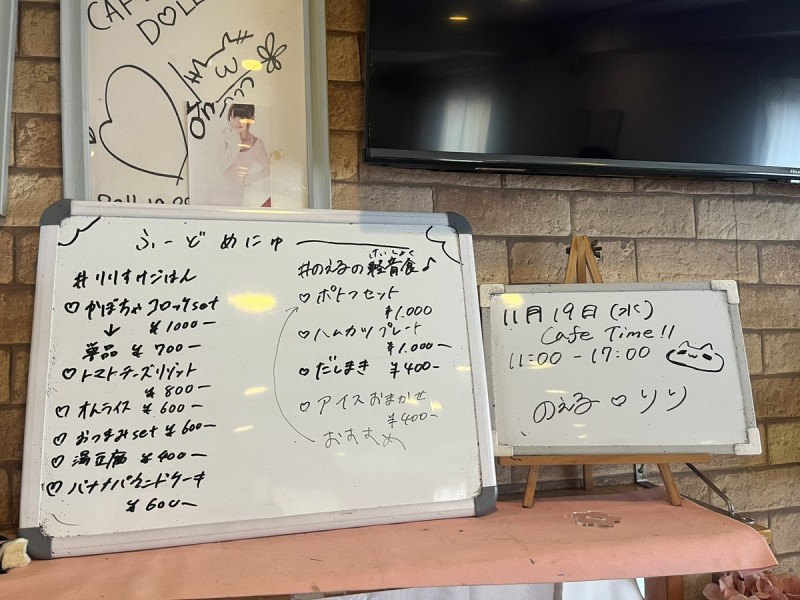 CAF
DOLL
ふーどめにゅー
#りりすけごはん
♡かぼちゃコロッケset
¥1000ー
↓
単品 ¥700ー
♡トマトチーズリゾット
¥800ー
♡オムライス ¥600ー
♡おつまみset ¥600ー
♡湯豆腐 ¥400ー
♡バナナパウンドケーキ
¥600ー
けいしょく
#のえるの軽音食♪
♡ポトフセット
¥1.000
♡ハムカツプレート
¥1.000ー
♡だしまき ¥400ー
♡アイスおまかせ
¥400ー
おすすめ
11月19日(水)
Cafe Time!!
11:00-17:00
のえる♡りり
Hisense